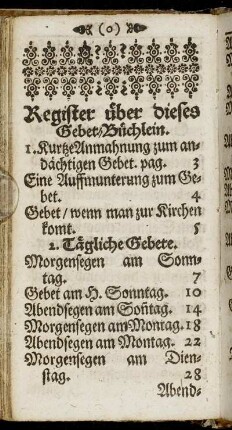 (0)
Register über dieses
Gebet/Büchlein.
1. Kurtze Anmahnung zum an-
dächtigen Gebet. pag. 3
Eine Auffmunterung zum Ge-
bet. 4
Gebet / wenn man zur Kirchen
komt. 5
2. Tägliche Gebete.
Morgensegen am Sonn-
tag. 7
Gebet am H. Sonntag. 10
Abendsegen am Soñtag. 14
Morgensegen am Montag. 18
Abendsegen am Montag. 22
Morgensegen am Dien-
stag. 28
Abend-